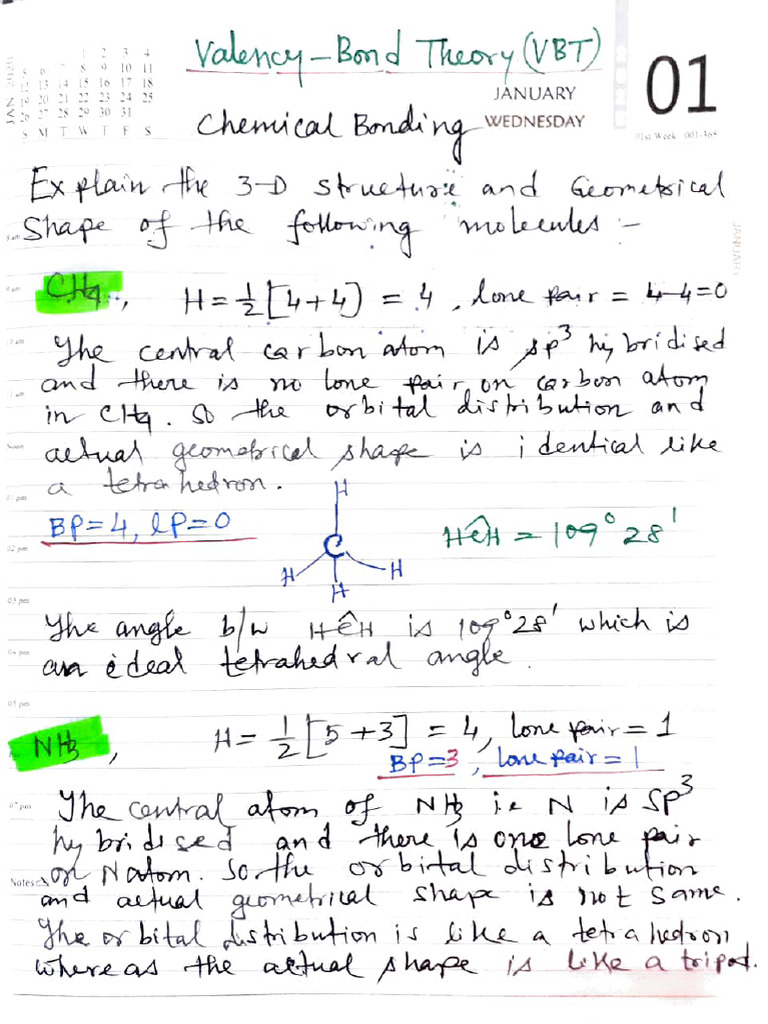 Valency-Bond Theory (VBT)
JAN 2020
1 2 3 4
5 6 7 8 9 10 11
12 13 14 15 16 17 18
19 20 21 22 23 24 25
26 27 28 29 30 31
S M T W T F S
JANUARY
WEDNESDAY
01
01st Week 001-365
Chemical Bonding
Explain the 3-D structure and Geometrical
Shape of the following molecules :-
JANUARY
CH4, H = 1/2 [4+4] = 4, lone pair = 4-4=0
The central carbon atom is sp³ hybridised
and there is no lone pair, on carbon atom
in CH4. So the orbital distribution and
actual geometrical shape is identical like
a tetrahedron.
BP=4, lP=0
H
C
H H
H
HĈH = 109° 28'
The angle b/w HĈH is 109°28' which is
an ideal tetrahedral angle.
NH3, H = 1/2 [5+3] = 4, lone pair = 1
BP=3, lone pair = 1
The central atom of NH3 ie N is SP³
hybridised and there is one lone pair
Notes
on N atom. So the orbital distribution
and actual geometrical shape is not same.
The orbital distribution is like a tetrahedron
whereas the actual shape is like a tripod.